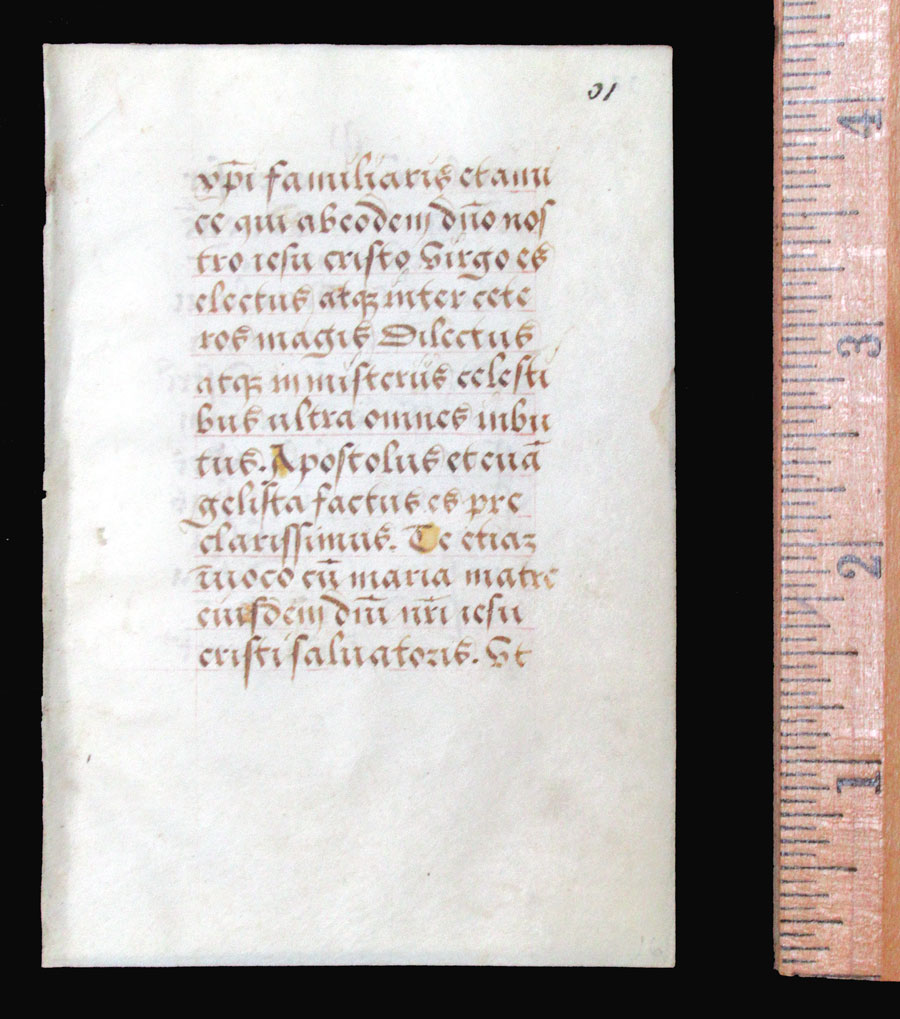 31
xp̄i familiaris et ami
ce qui ab eodem dn̄o nos
tro iesu cristo Virgo es
electus atqꝫ inter cete
ros magis Dilectus
atqꝫ in misteriis celesti
bus ultra omnes inbu
tus. Apostolus et euā
gelista factus es pre
clarissimus. Te etiaꝫ
īuoco cū maria matre
eiusdem dn̄i nr̄i iesu
cristi saluatoris. Vt
4
3
2
1